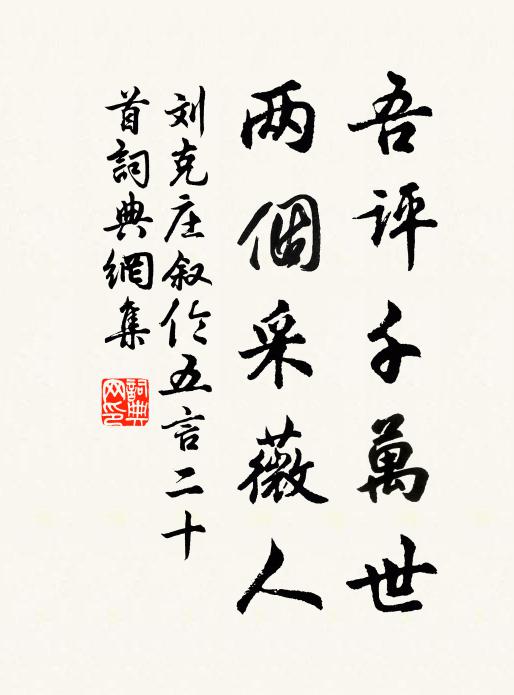 吾評千萬世
两個采薇人
刘克庄叙伦五言二十
首詞典網集
詞典
网印